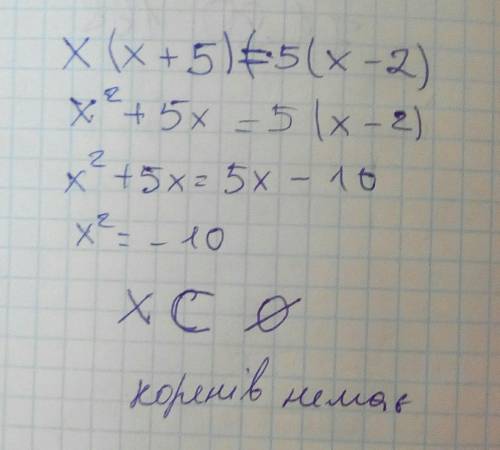 x(x+5)=5(x-2)
x²+5x=5(x-2)
x²+5x=5x-10
x²=-10
x⊂∅
коренів немає